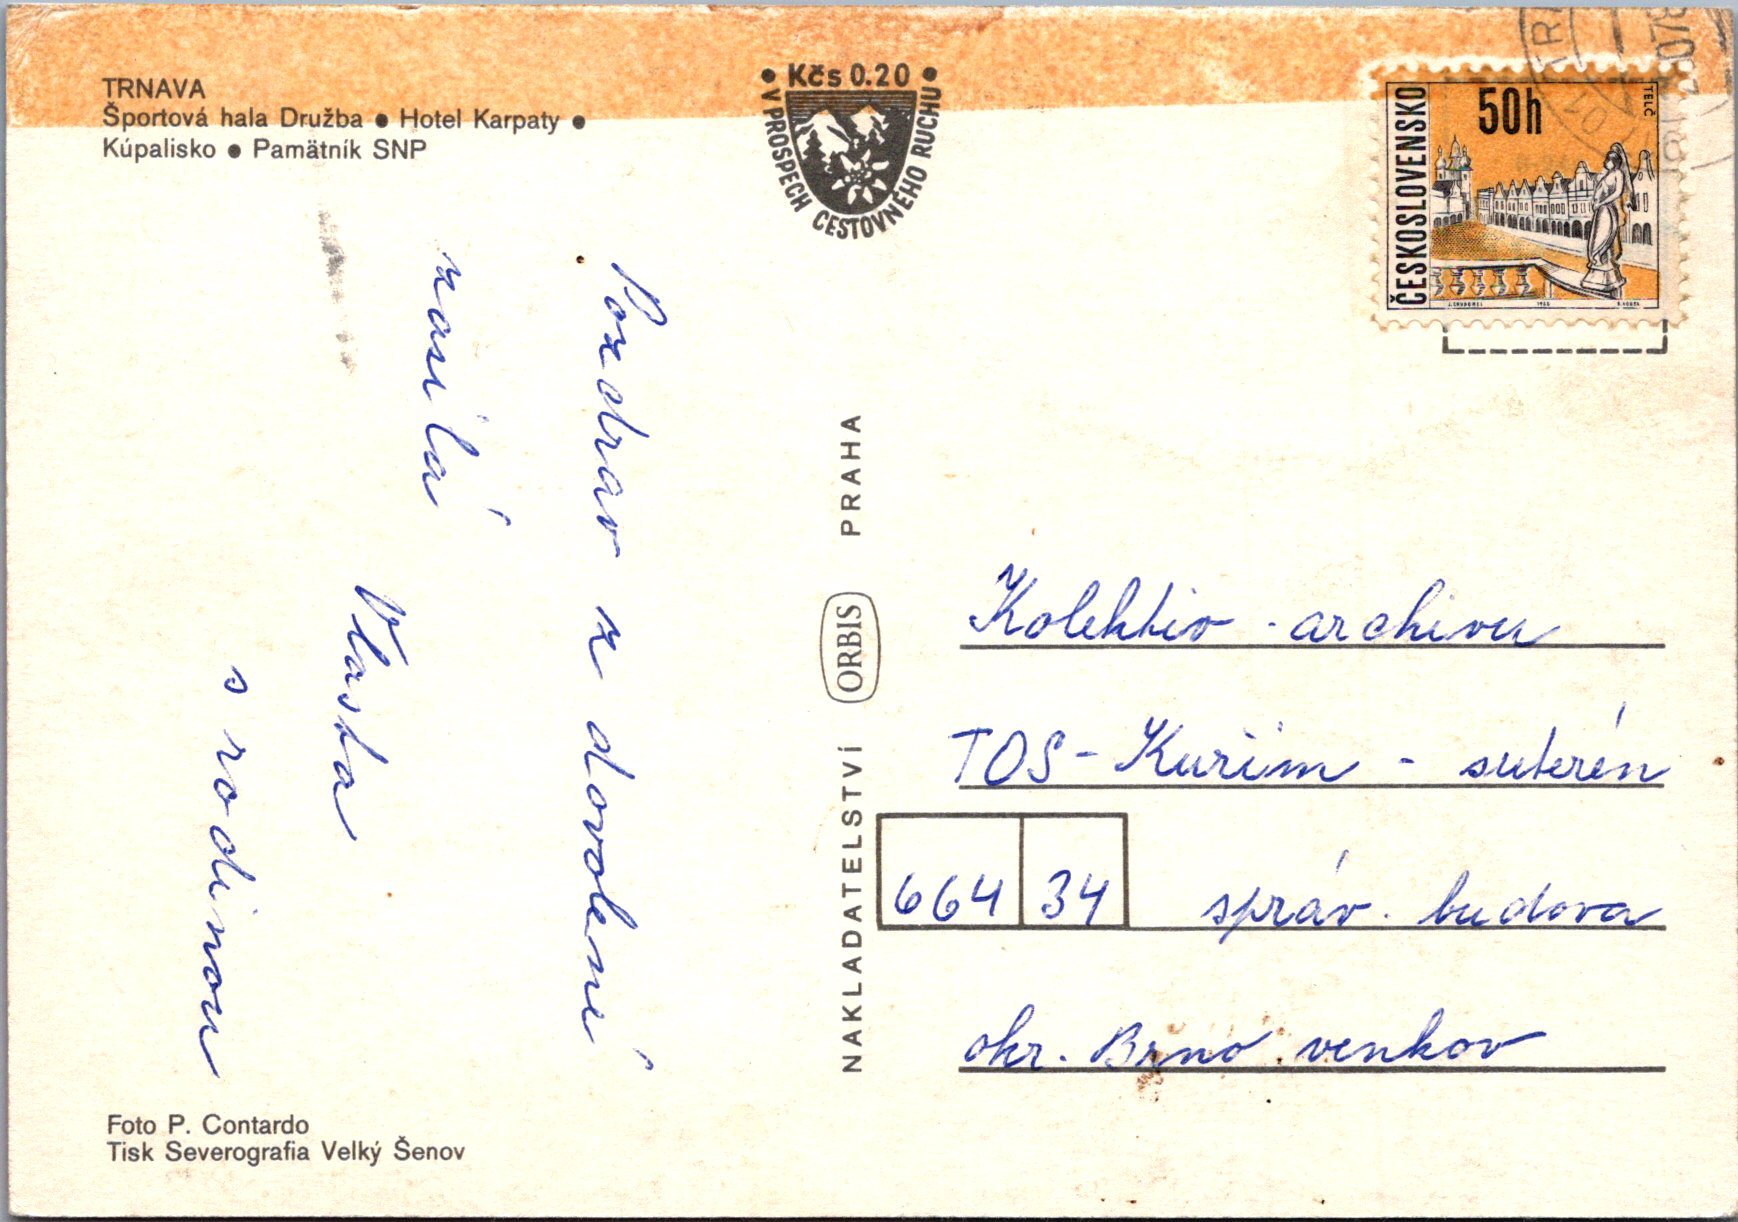 TRNAVA
Športová hala Družba ● Hotel Karpaty ●
Kúpalisko ● Pamätník SNP
● Kčs 0.20 ●
V PROSPECH CESTOVNÉHO RUCHU
ČESKOSLOVENSKO
50h
TELČ
Pozdrav z dovolené
zasílá
Vlasta
s rodinou
NAKLADATELSTVÍ ORBIS PRAHA
Kolektiv archivu
TOS - Kuřim - suterén
664 34 správ. budova
okr. Brno venkov
Foto P. Contardo
Tisk Severografia Velký Šenov